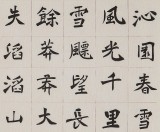 沁園春雪
風光千里
雪飄望長
餘莽莽大
失滔滔山